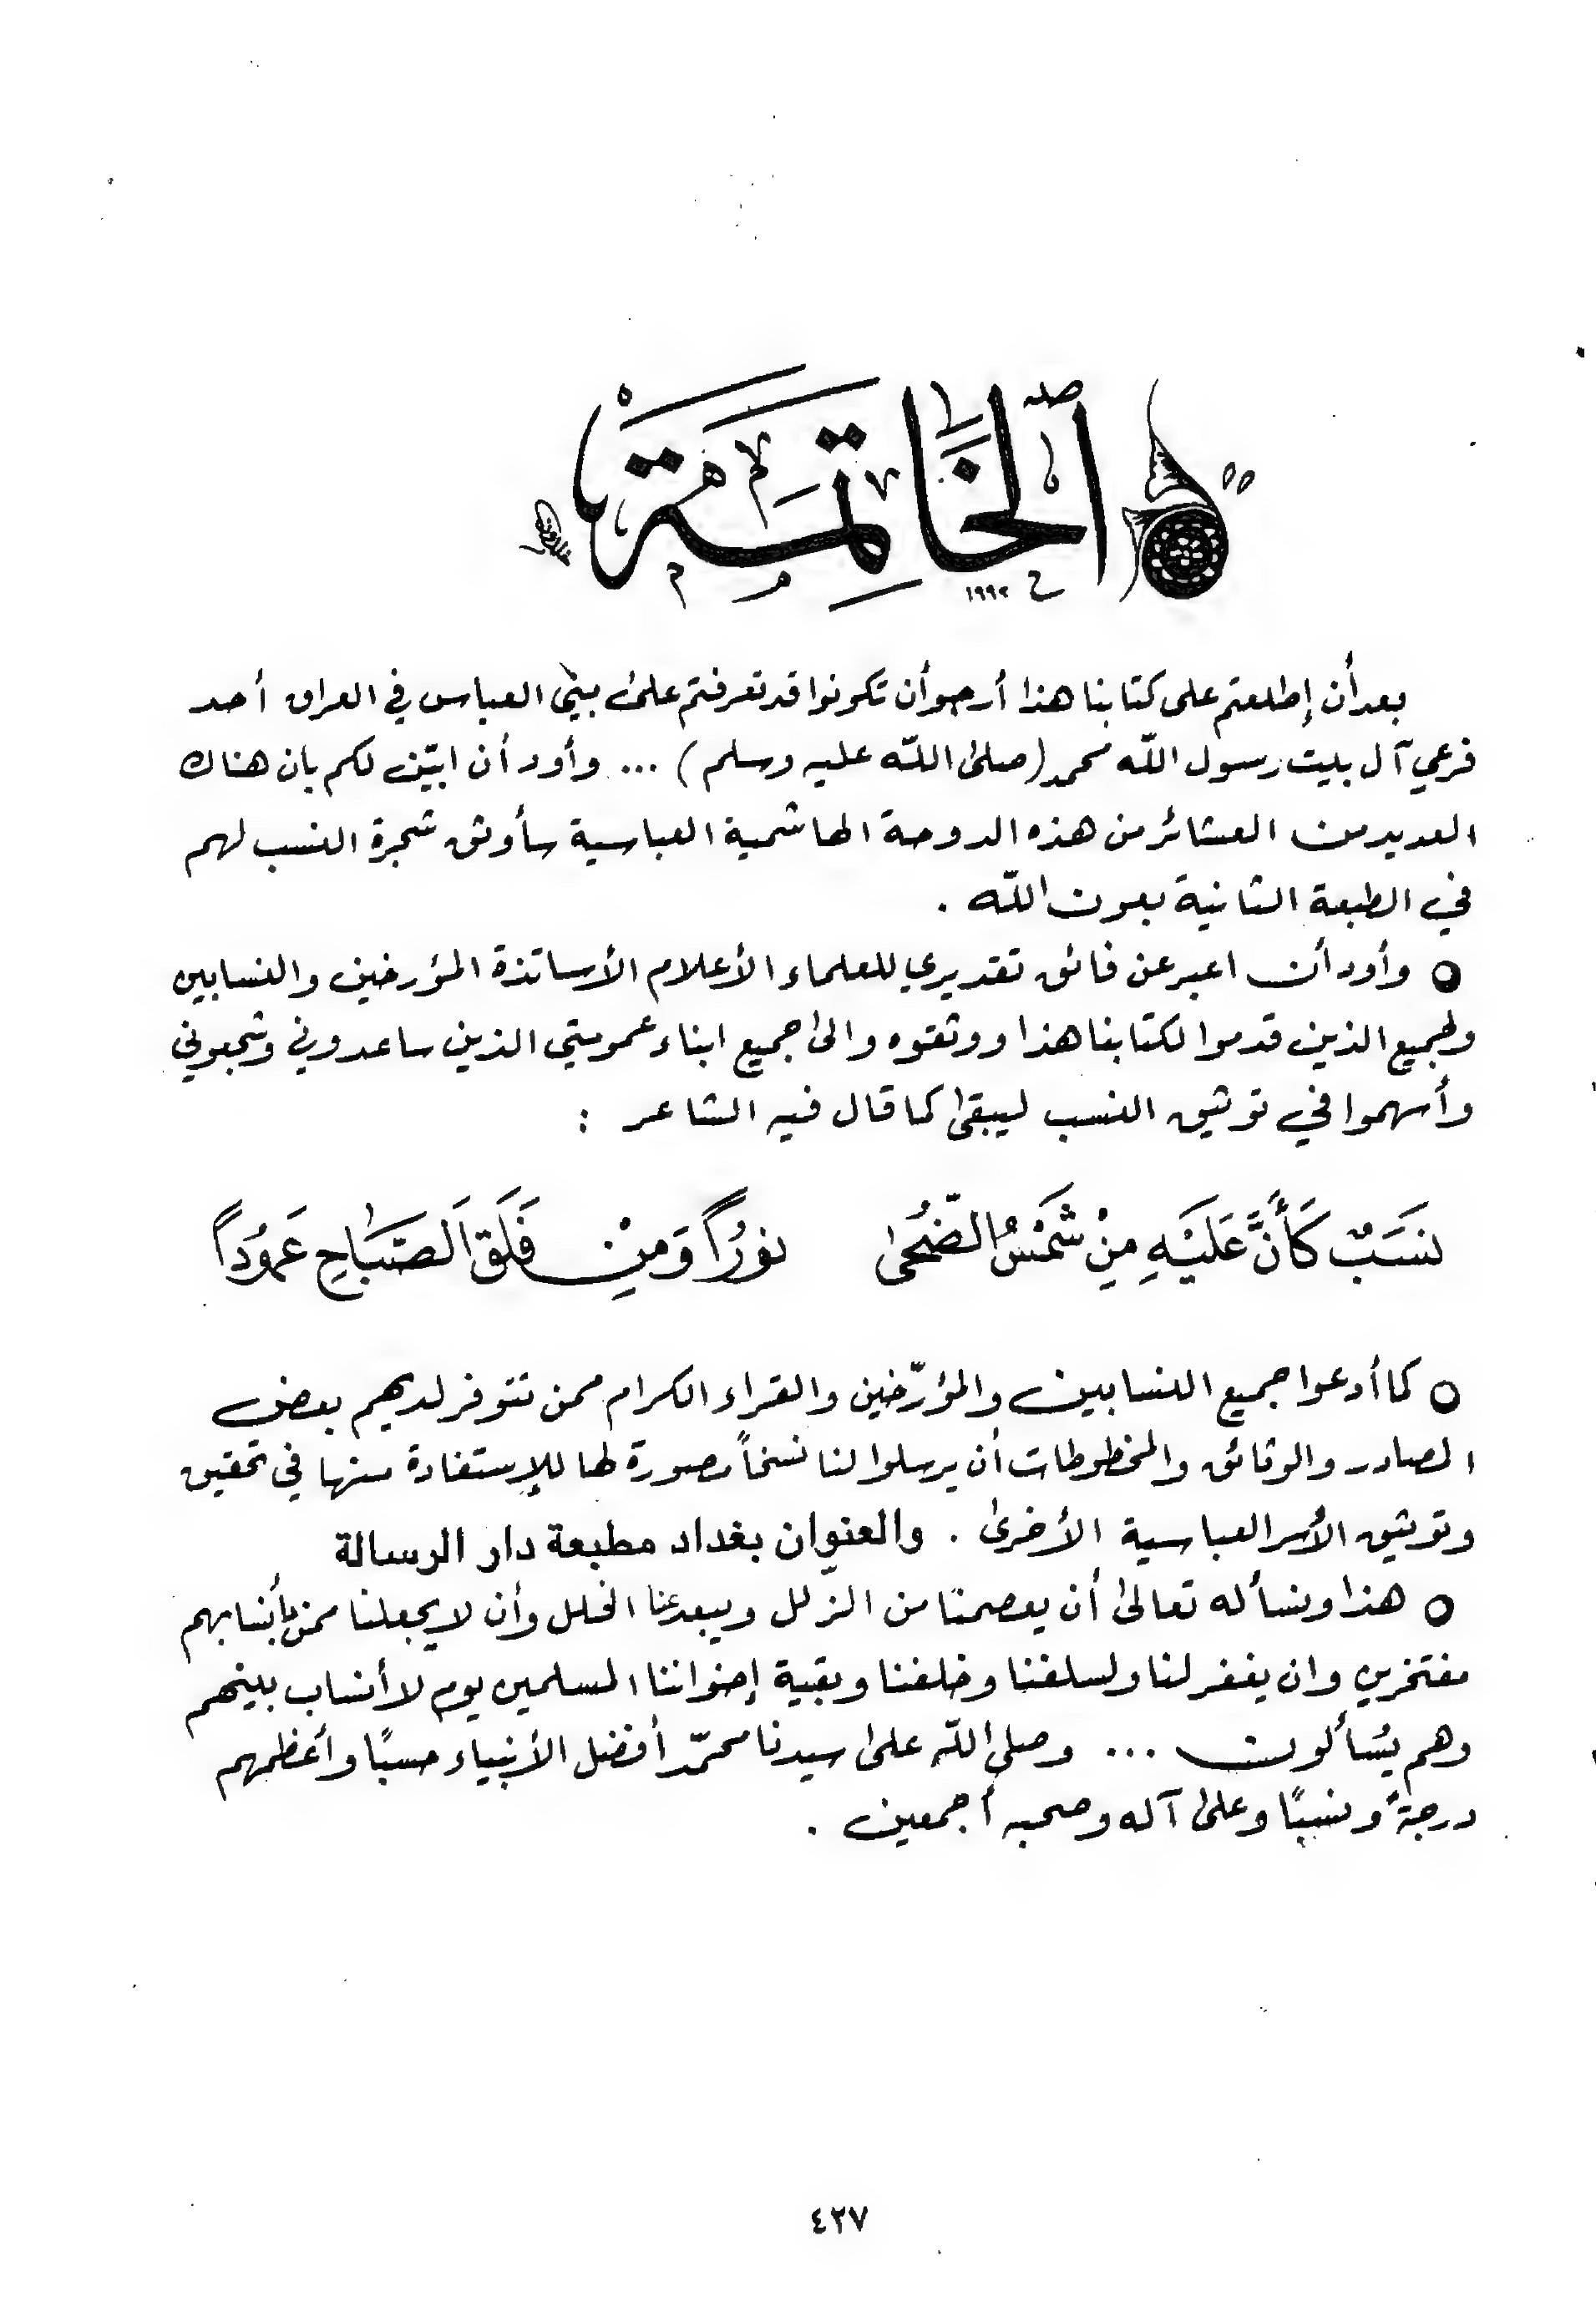 الخَاتِمَة
ح ١٩٩٢
بعد أن إطلعتم على كتابنا هذا أرجو أن تكونوا قد تعرفتم على بني العباس في العراق أحد
فرعي آل بيت رسول اللّه محمد (صلى اللّه عليه وسلم) ... وأود أن ابيّن لكم بان هناك
العديد من العشائر من هذه الدوحة الهاشمية العباسية سأوثق شجرة النسب لهم
في الطبعة الثانية بعون اللّه .
○ وأود أن اعبر عن فائق تقديري للعلماء الأعلام الأساتذة المؤرخين والنسابين
ولجميع الذين قدموا لكتابنا هذا ووثقوه والى جميع ابناء عمومتي الذين ساعدوني وشجعوني
وأسهموا في توثيق النسب ليبقى كما قال فيه الشاعر :
نَسَبٌ كَأَنَّ عَلَيْهِ مِنْ شَمْسُ الضُّحَى نوُراً وَمِنْ فَلَق الَصَبَاحِ عَمُوُداً
○ كما أدعوا جميع النسابين والمؤرّخين والقراء الكرام ممن تتوفر لديهم بعض
المصادر والوثائق والمخطوطات أن يرسلوا لنا نسخاً مصورة لها للإستفادة منها في تحقيق
وتوثيق الأسر العباسية الأخرى . والعنوان بغداد مطبعة دار الرسالة
○ هذا ونسأله تعالى أن يعصمنا من الزلل ويبعد عنا الخلل وأن لا يجعلنا ممن بأنسابهم
مفتخرين وان يغفر لنا ولسلفنا وخلفنا وبقية إخواننا المسلمين يوم لا أنساب بينهم
وهم يُسألون ... وصلى اللّه على سيدنا محمّد أفضل الأنبياء حسبًا وأعظمهم
درجةً ونسبًا وعلى آله وصحبه أجمعين .
٤٢٧